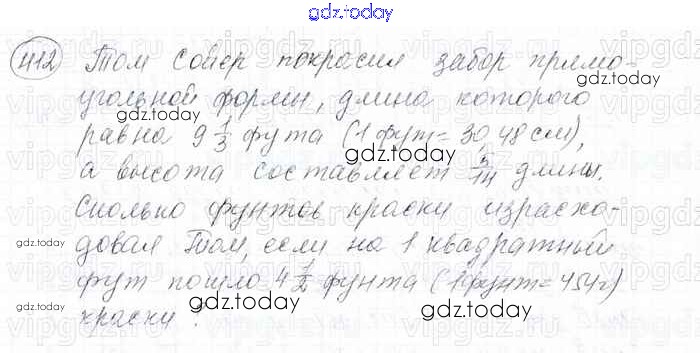 gdz.today
412 Том Сойер покрасил забор прямо-
угольной формы, длина которого
равна 9 1/3 фута (1 фут = 30,48 см),
а высота составляет 5/14 длины.
Сколько фунтов краски израсхо-
довал Том, если на 1 квадратный
фут пошло 4 1/2 фунта (1 фунт = 454 г)
краски?